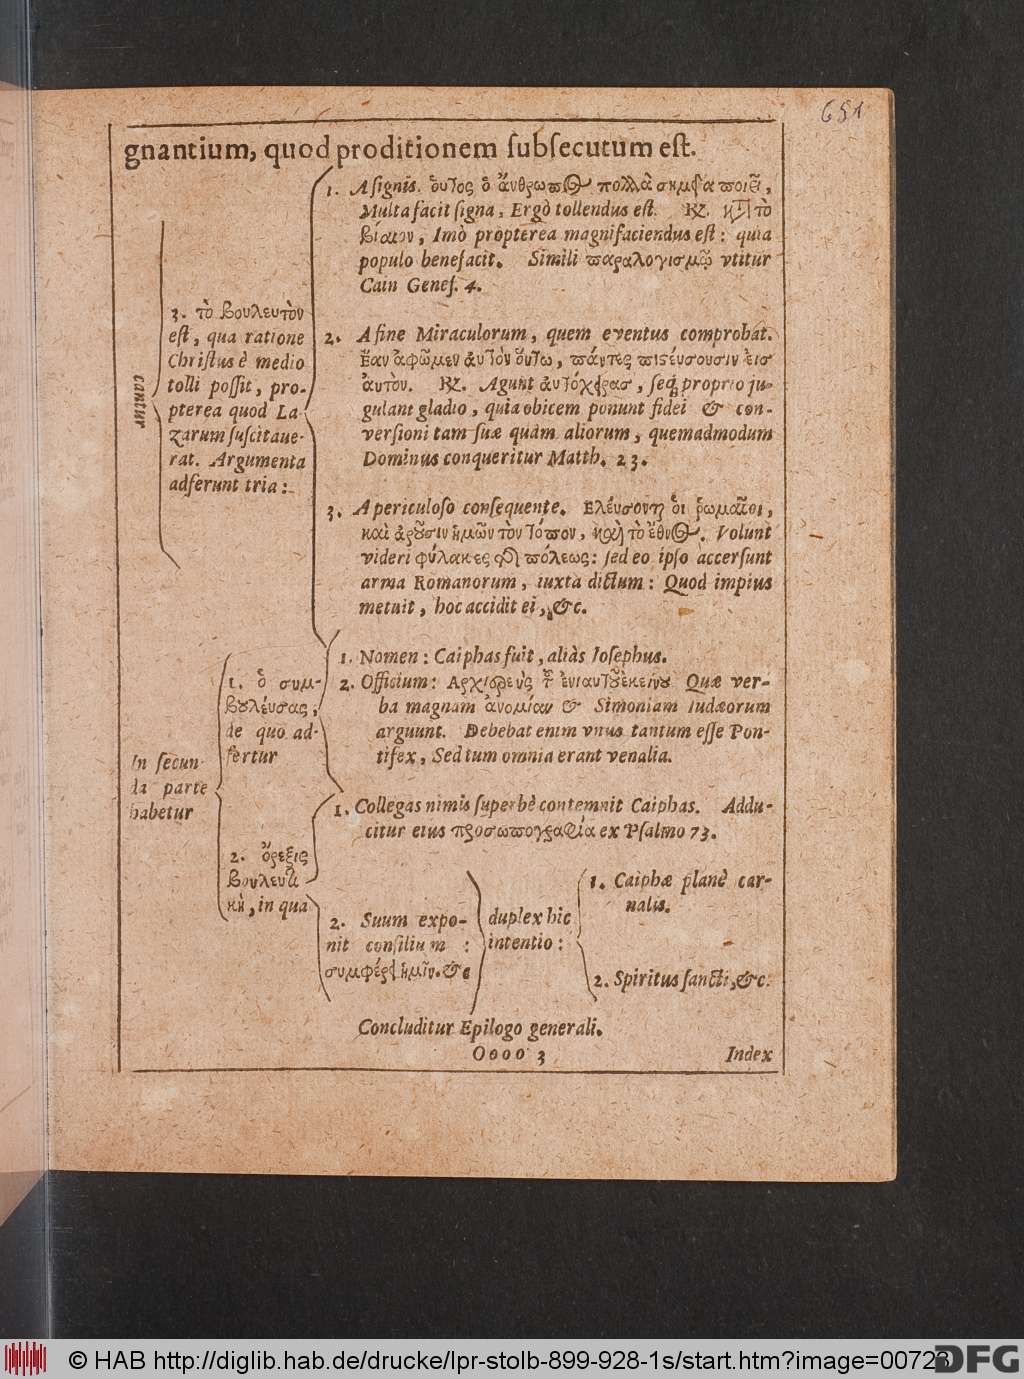 651
gnantium, quod proditionem ſubſecutum eſt.
cantur
3. τὸ βουλευτὸν
eſt, qua ratione
Chriſtus è medio
tolli poſſit, pro-
pterea quod La-
zarum ſuſcitaue-
rat. Argumenta
adferunt tria:
1. A ſignis. οὗτος ὁ ἄνθρωπος πολλὰ σημεῖα ποιεῖ,
Multa facit ſigna, Ergò tollendus eſt. ℞. κατὰ τὸ
βίαιον, Imò propterea magnifaciendus eſt: quia
populo benefacit. Simili παραλογισμῷ vtitur
Cain Geneſ. 4.
2. A fine Miraculorum, quem eventus comprobat.
Ἐὰν ἀφῶμεν αὐτὸν οὕτω, πάντες πιστεύσουσιν εἰς
ἀυτὸν. ℞. Agunt ἀυτόχειρας, ſeq́ proprio ju-
gulant gladio, quia obicem ponunt fidei & con-
verſioni tam ſuæ quàm aliorum, quemadmodum
Dominus conqueritur Matth. 23.
3. A periculoſo conſequente. Ελέυσονται ὁι ῥωμαῖοι,
καὶ ἀροῦσιν ἡμῶν τὸν τόπον, καὶ τὸ ἔθνος. Volunt
videri φύλακες τῆς πόλεως: ſed eo ipſo accerſunt
arma Romanorum, iuxta dictum: Quod impius
metuit, hoc accidit ei, &c.
In ſecun-
da parte
habetur
1. ὁ συμ-
βουλέυσας,
de quo ad-
fertur
1. Nomen: Caiphas fuit, aliàs Ioſephus.
2. Officium: Αρχιερεὺς τοῦ ἐνιαυτοῦ ἐκείνου Quæ ver-
ba magnam ἀνομίαν & Simoniam Iudæorum
arguunt. Debebat enim vnus tantum eſſe Pon-
tifex, Sed tum omnia erant venalia.
2. ὄρεξις
βουλευτι
κὴ, in qua
1. Collegas nimis ſuperbè contemnit Caiphas. Addu-
citur eius προσωπογραφία ex Pſalmo 73.
2. Suum expo-
nit conſilium:
συμφέρει ἡμῖν. &c
duplex hic
intentio:
1. Caiphæ planè car-
nalis.
2. Spiritus ſancti, &c.
Concluditur Epilogo generali.
Oooo 3
Index
© HAB http://diglib.hab.de/drucke/lpr-stolb-899-928-1s/start.htm?image=00723
DFG